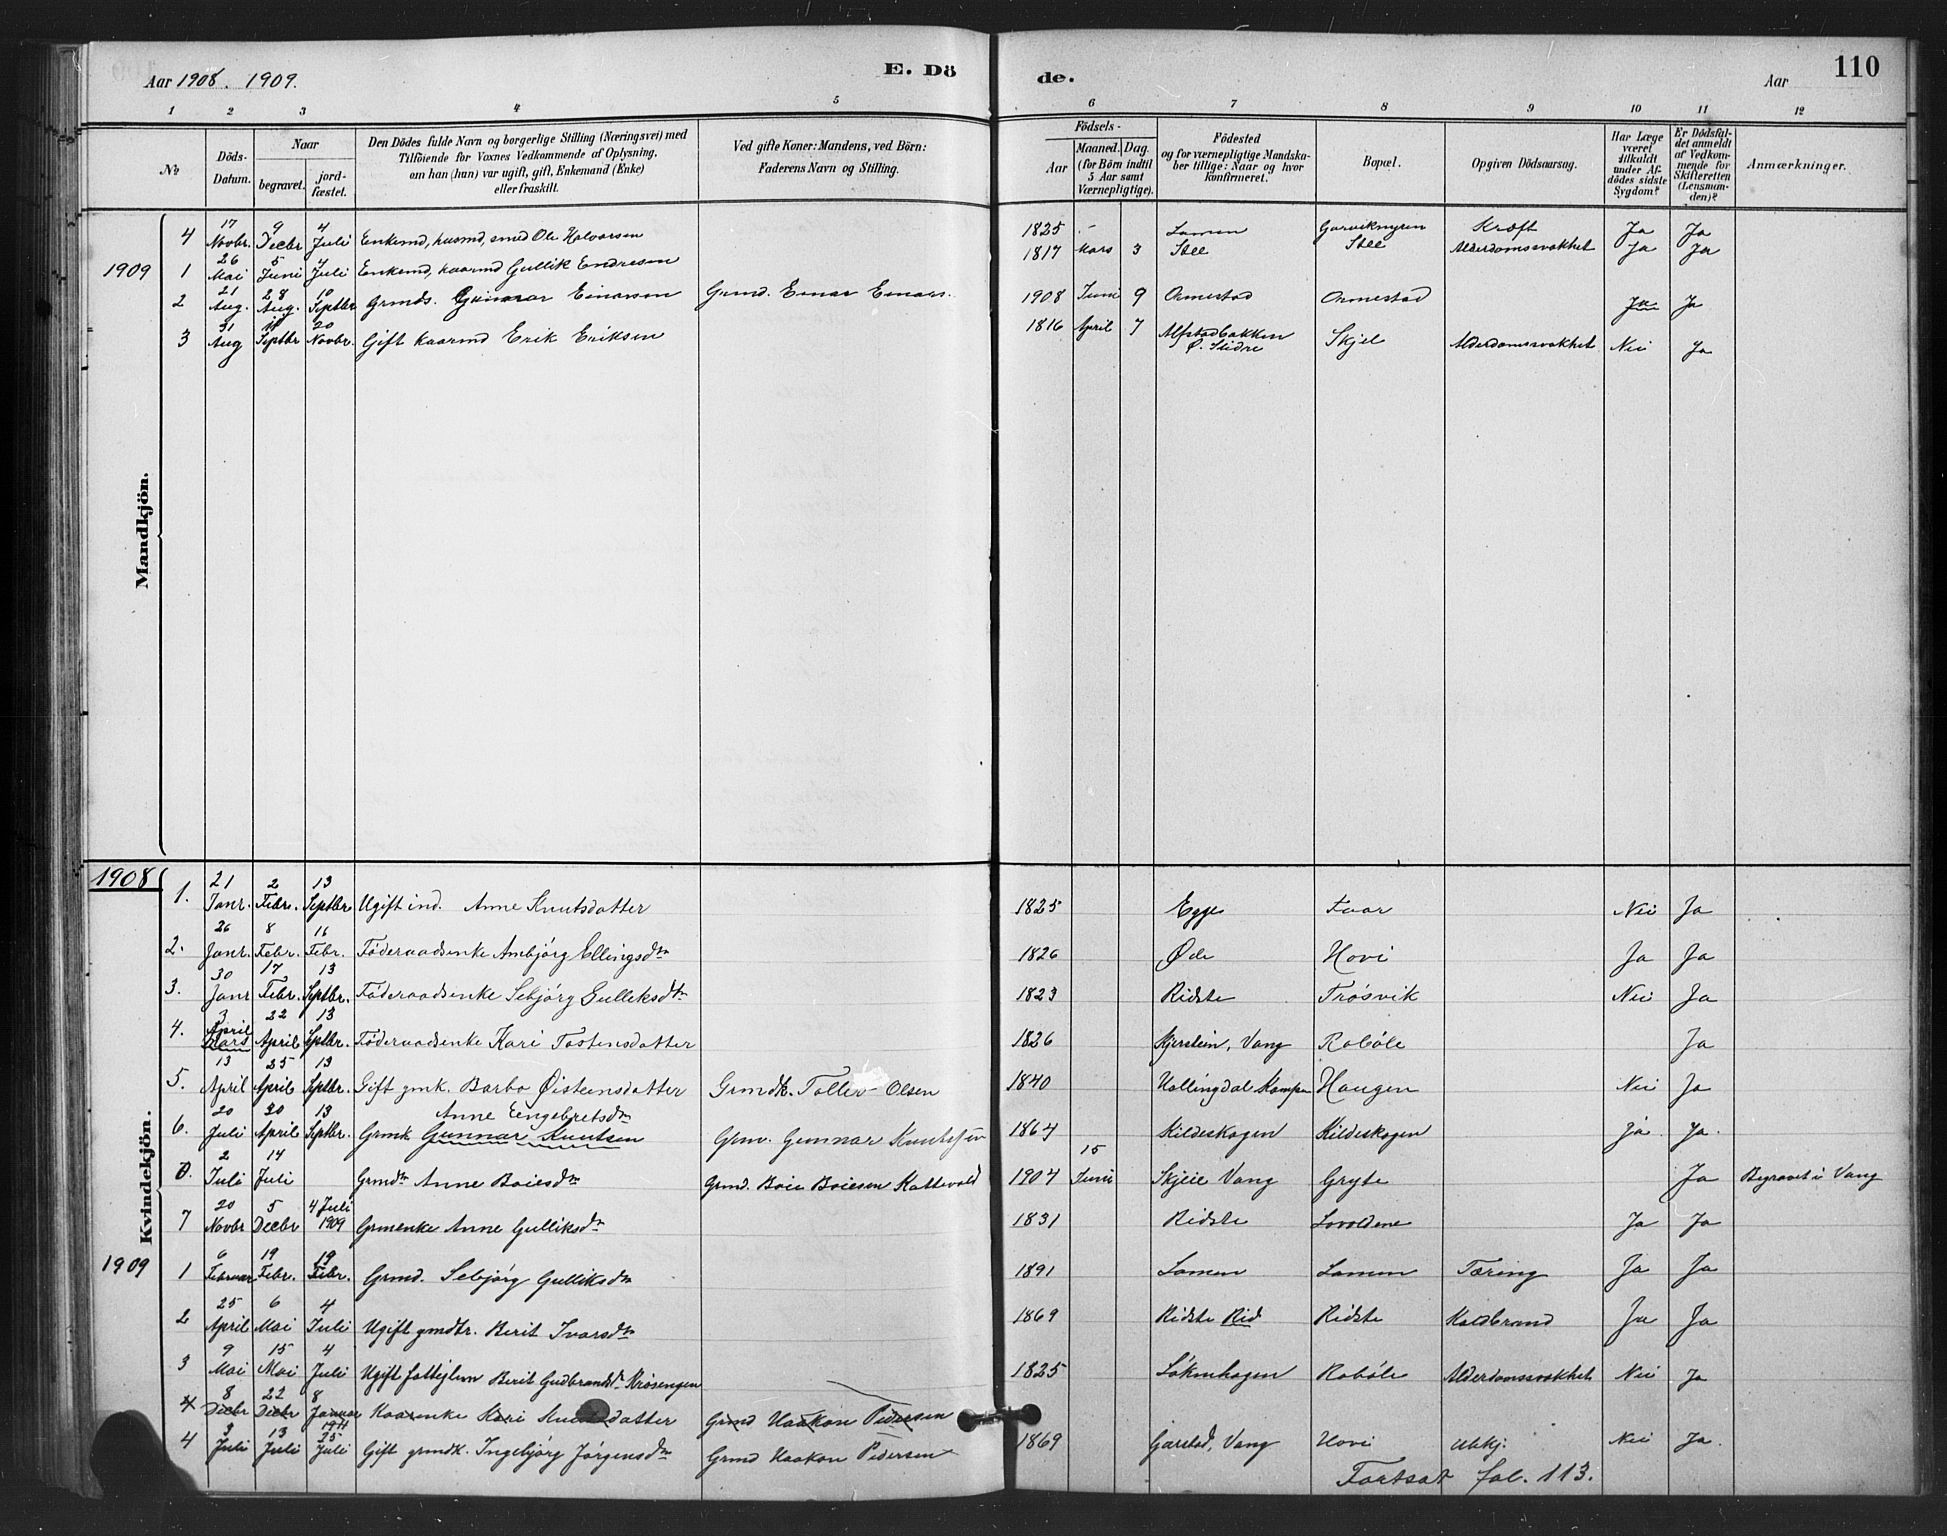 Aar 1908. 1909.
E. Dö
de.
Aar
110
1 2 3 4 5 6 7 8 9 10 11 12
№
Döds-Datum.
Naar
begravet.
jord-fæstet.
Den Dödes fulde Navn og borgerlige Stilling (Næringsvei) med
Tilföiende for Voxnes Vedkommende af Oplysning,
om han (hun) var ugift, gift, Enkemand (Enke)
eller fraskilt.
Ved gifte Koner: Mandens, ved Börn:
Faderens Navn og Stilling.
Födsels-
Aar
Maaned. Dag.
(for Börn indtil
5 Aar samt
Værnepligtige).
Födested
og for værnepligtige Mandska-
ber tillige: Naar og hvor
konfirmeret.
Bopæl.
Opgiven Dödsaarsag.
Har Læge
været
tilkaldt
under Af-
dödes sidste
Sygdom?
Er Dödsfal-
det anmeldt
af Vedkom-
mende for
Skifteretten
(Lensman-
den)?
Anmærkninger.
Mandkjön.
4 17 Novbr. 9 Decbr 4 Juli Enkemd, husmd, smed Ole Halvorsen 1825 - Lomen Garvikmyren Kræft Ja Ja
1909 1 26 Mai 5 Juni 4 Juli Enkemd, kaarmd Gullik Endresen 1817 Mars 3 Stee Stee Alderdomssvakhet Ja Ja
2 21 Aug. 28 Aug. 10 Septbr Grmds. Gunnar Einarsen Grmd. Einar Einars. 1908 Juni 9 Ormestad Ormestad Ja Ja
3 31 Aug Septbr 20 Novbr. Gift kaarmd Erik Eriksen 1816 April 7 Alfstadbakken Ø. Slidre Skjel Alderdomssvakhet Nei Ja
Kvindekjön.
1908
1. 21 Janr. 2 Febr. 13 Septbr Ugift ind. Anne Knutsdatter 1825 Egge Nei Ja
2. 26 Janr. 8 Febr. 16 Febr. Føderaadsenke Ambjørg Ellingsdtr 1826 Øde Hovi Ja Ja
3. 30 Janr 17 Febr. 13 Septbr. Føderaadsenke Sebjörg Gulleksdtr 1823 Ridste Trøsvik Nei Ja
4. 3 April Mars 22 April 13 Sptbr. Føderaadsenke Kari Tostensdatter 1826 Skjerstein, Vang Robøle Ja
5. 13 April 25 April 13 Sptbr. Gift gmk. Barbo Øisteensdatter Grmdk. Tollev Olsen 1840 Hallingdal Haugen Nei Ja
6. 20 Juli 30 April 13 Septbr. Grmk Anne Eengebretsdtr Gunnar Knutsen Grmv. Gunnar Knutssen 1864 Kildeskogen Kildeskogen Ja Ja.
0. 2 Juli 14 Juli Grmdtr Anne Boiesdtr Grmd. Boie Boiesen Kattevold 1904 15 Juni Skjeie Vang Gryte Ja Begravet i Vang
7 20 Novbr 5 Decbr 4 Juli 1909 Grmenke Anne Gulliksdtr 1831 Ridste Lovoldene Ja Ja
1909 1 6 Februar 19 Febr. 19 Febr. Grmd. Sebjörg Gulliksdtr 1891 Lomen Lomen Tæring Ja Ja
2 25 April 6 Mai 4 Juli Ugift gmdtr. Berit Ivarsdtr 1869 Ridste Rid Ridste Koldbrand Ja Ja
3 9 Mai 15 Mai 4 Juli Ugift fattiglem Berit Gudbrandsdtr Krøsengen 1825 Løkenhagen Robøle Alderdomssvakhet Nei Ja
4 8 Decbr 22 Decbr 8 Januar 1911 Kaarenke Kari Knutsdatter Grmd Haakon Pedersen
4 3 Juli 13 Juli 25 Juli Gift grmdk. Ingebjörg Jørgensdtr Grmd Haakon Pedersen 1869 Garstad, Vang Hovi Ubkj. Nei Ja.
Fortsat fol. 113.